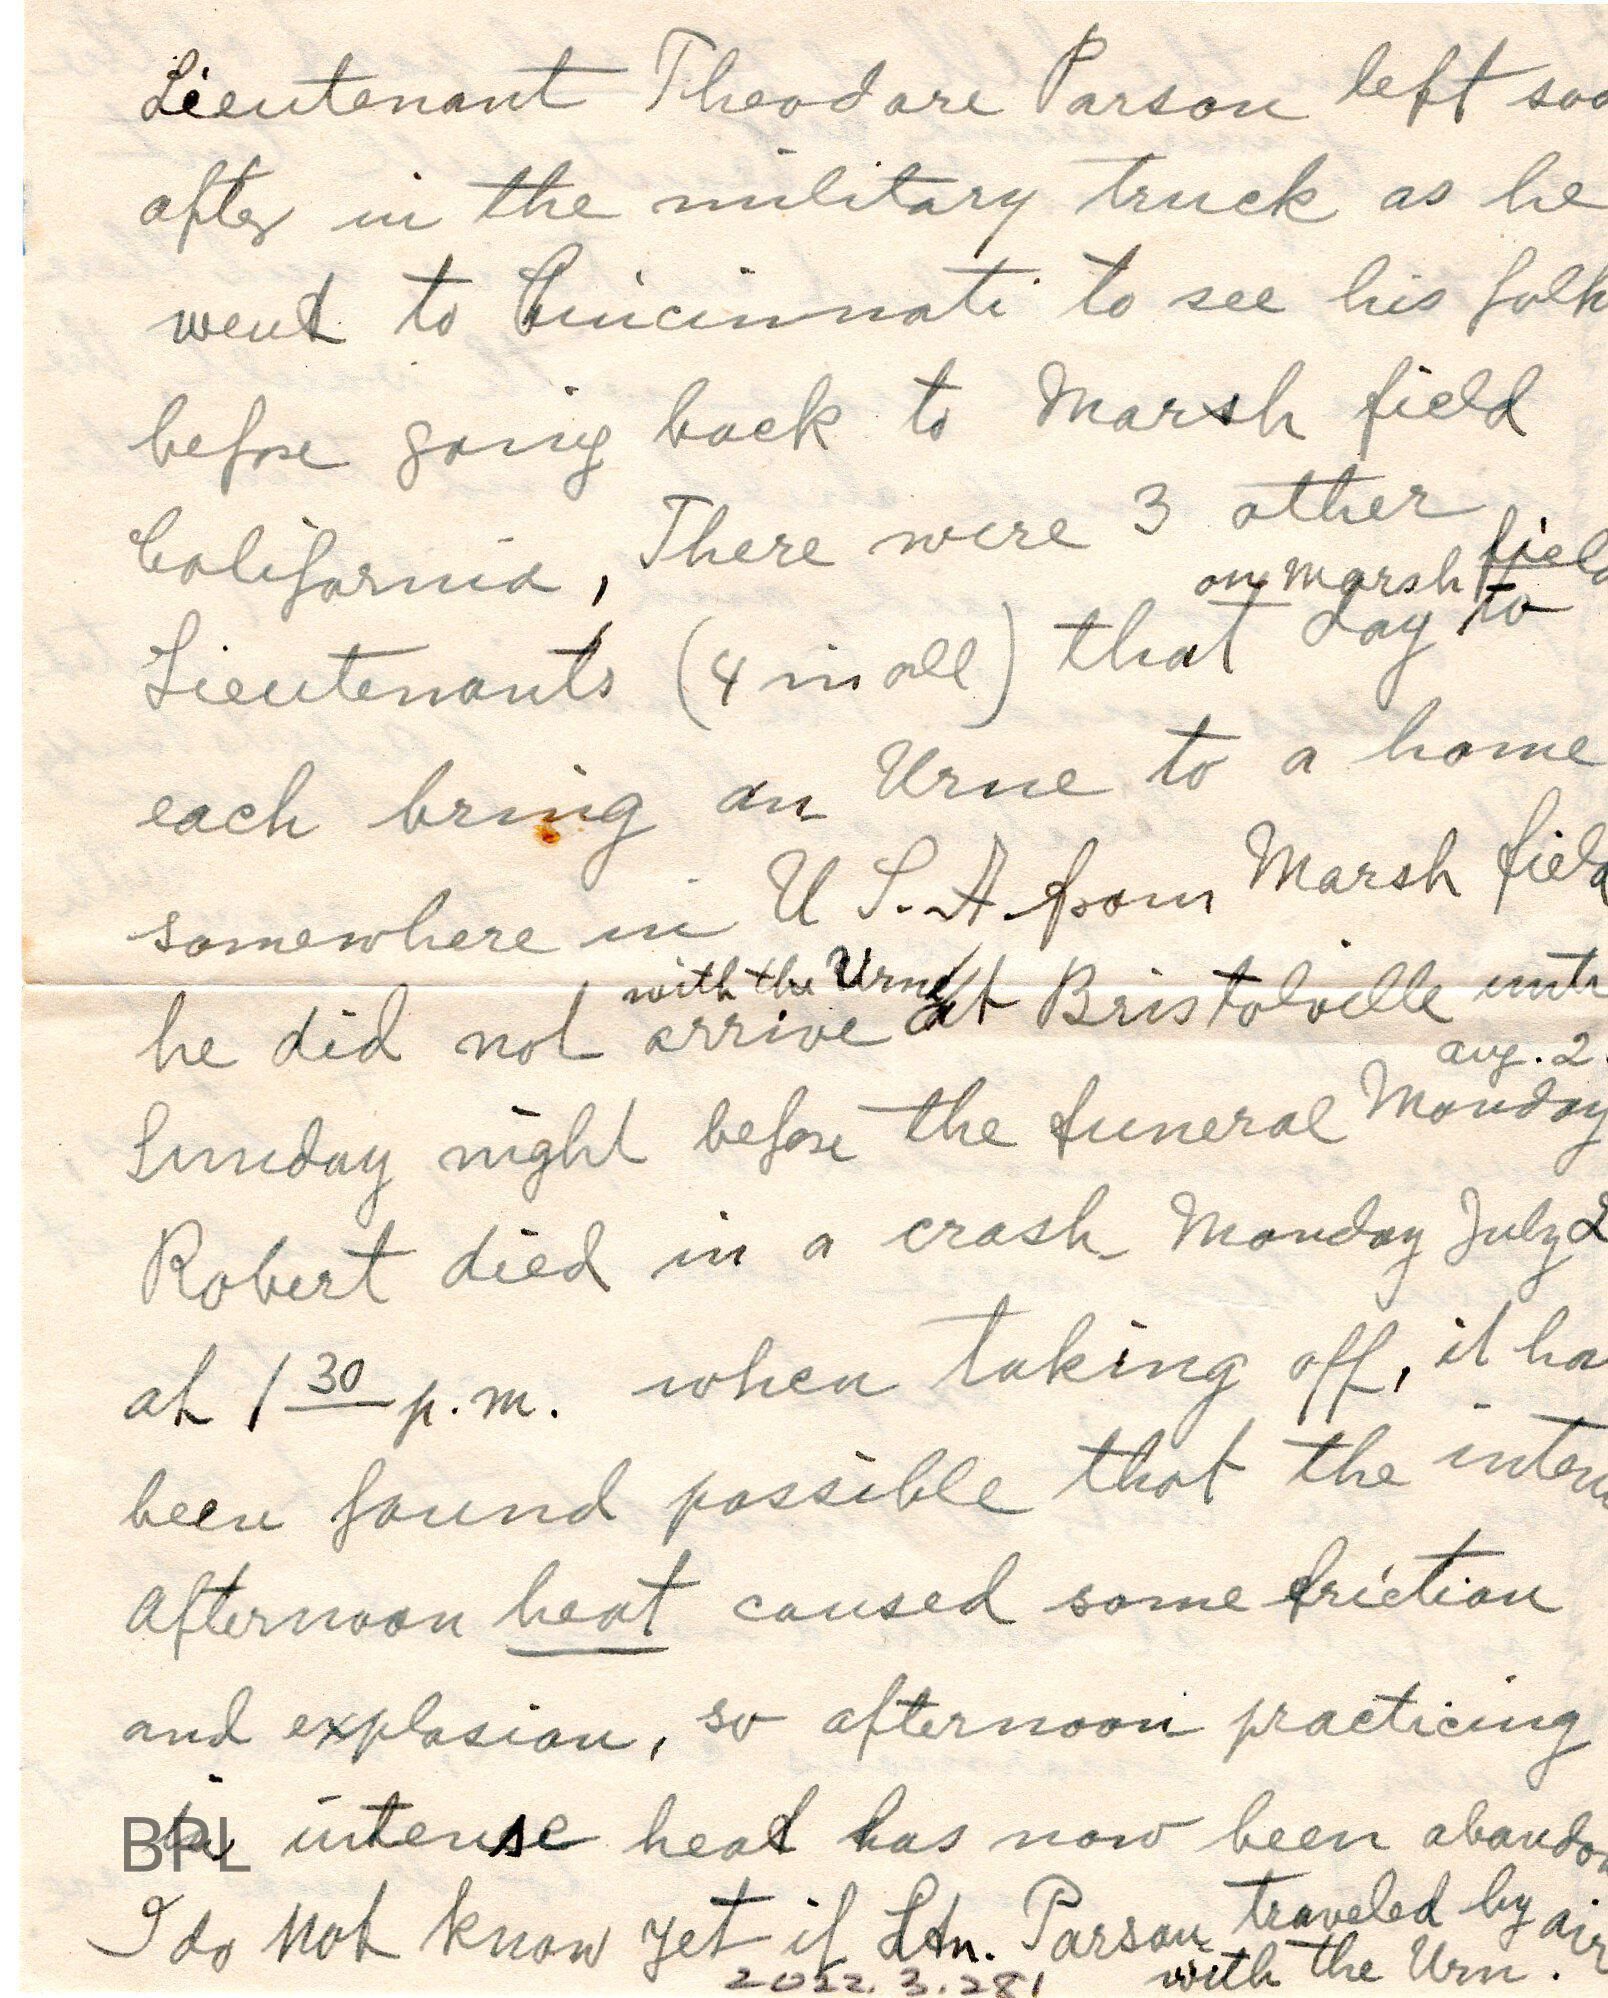 Lieutenant Theodore Parson left soo
after in the military truck as he
went to Cincinnati to see his folk
before going back to Marsh field
California, There were 3 other
on Marsh field
Lieutenants (4 in all) that day to
each bring an Urne to a home
somewhere in U S. A. from Marsh field
with the Urne
he did not arrive at Bristolville unti
aug. 2.
Sunday night before the funeral Monday
Robert died in a crash Monday July 2
at 1 30 p.m. when taking off, it ha
been found possible that the inten
afternoon heat caused some friction
and explosion, so afternoon practicing
in intense heat has now been abandon
BPL
I do not know yet if Ltn. Parson traveled by air
with the Urn.
2022.3.281